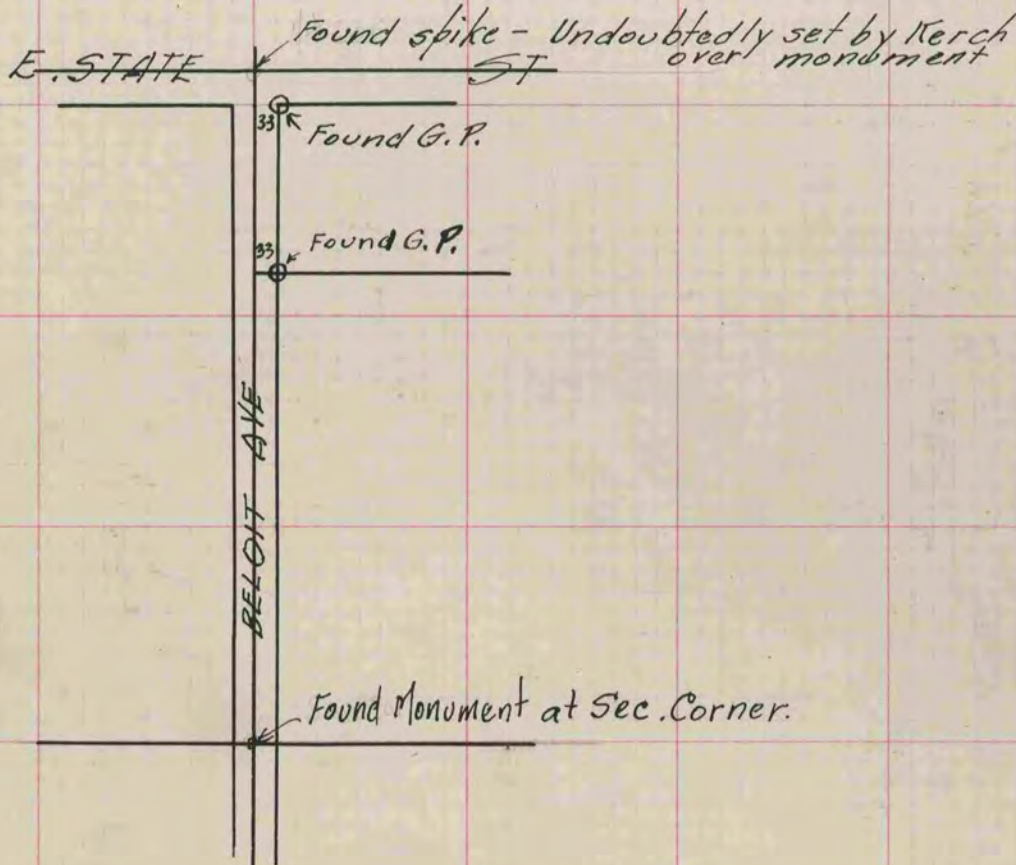 Found spike - Undoubtedly set by Kerch
over monument
E. STATE ST
33
Found G.P.
33
Found G.P.
BELOIT AVE
Found Monument at Sec. Corner.